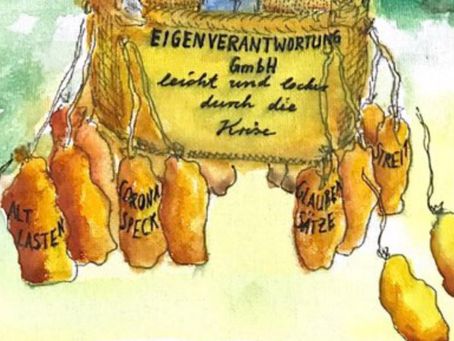 EIGENVERANTWORTUNG
GmbH
leicht und locker
durch die
Krise
ALT
LASTEN
CORONA
SPECK
GLAUBEN
SÄTZE
STREIT